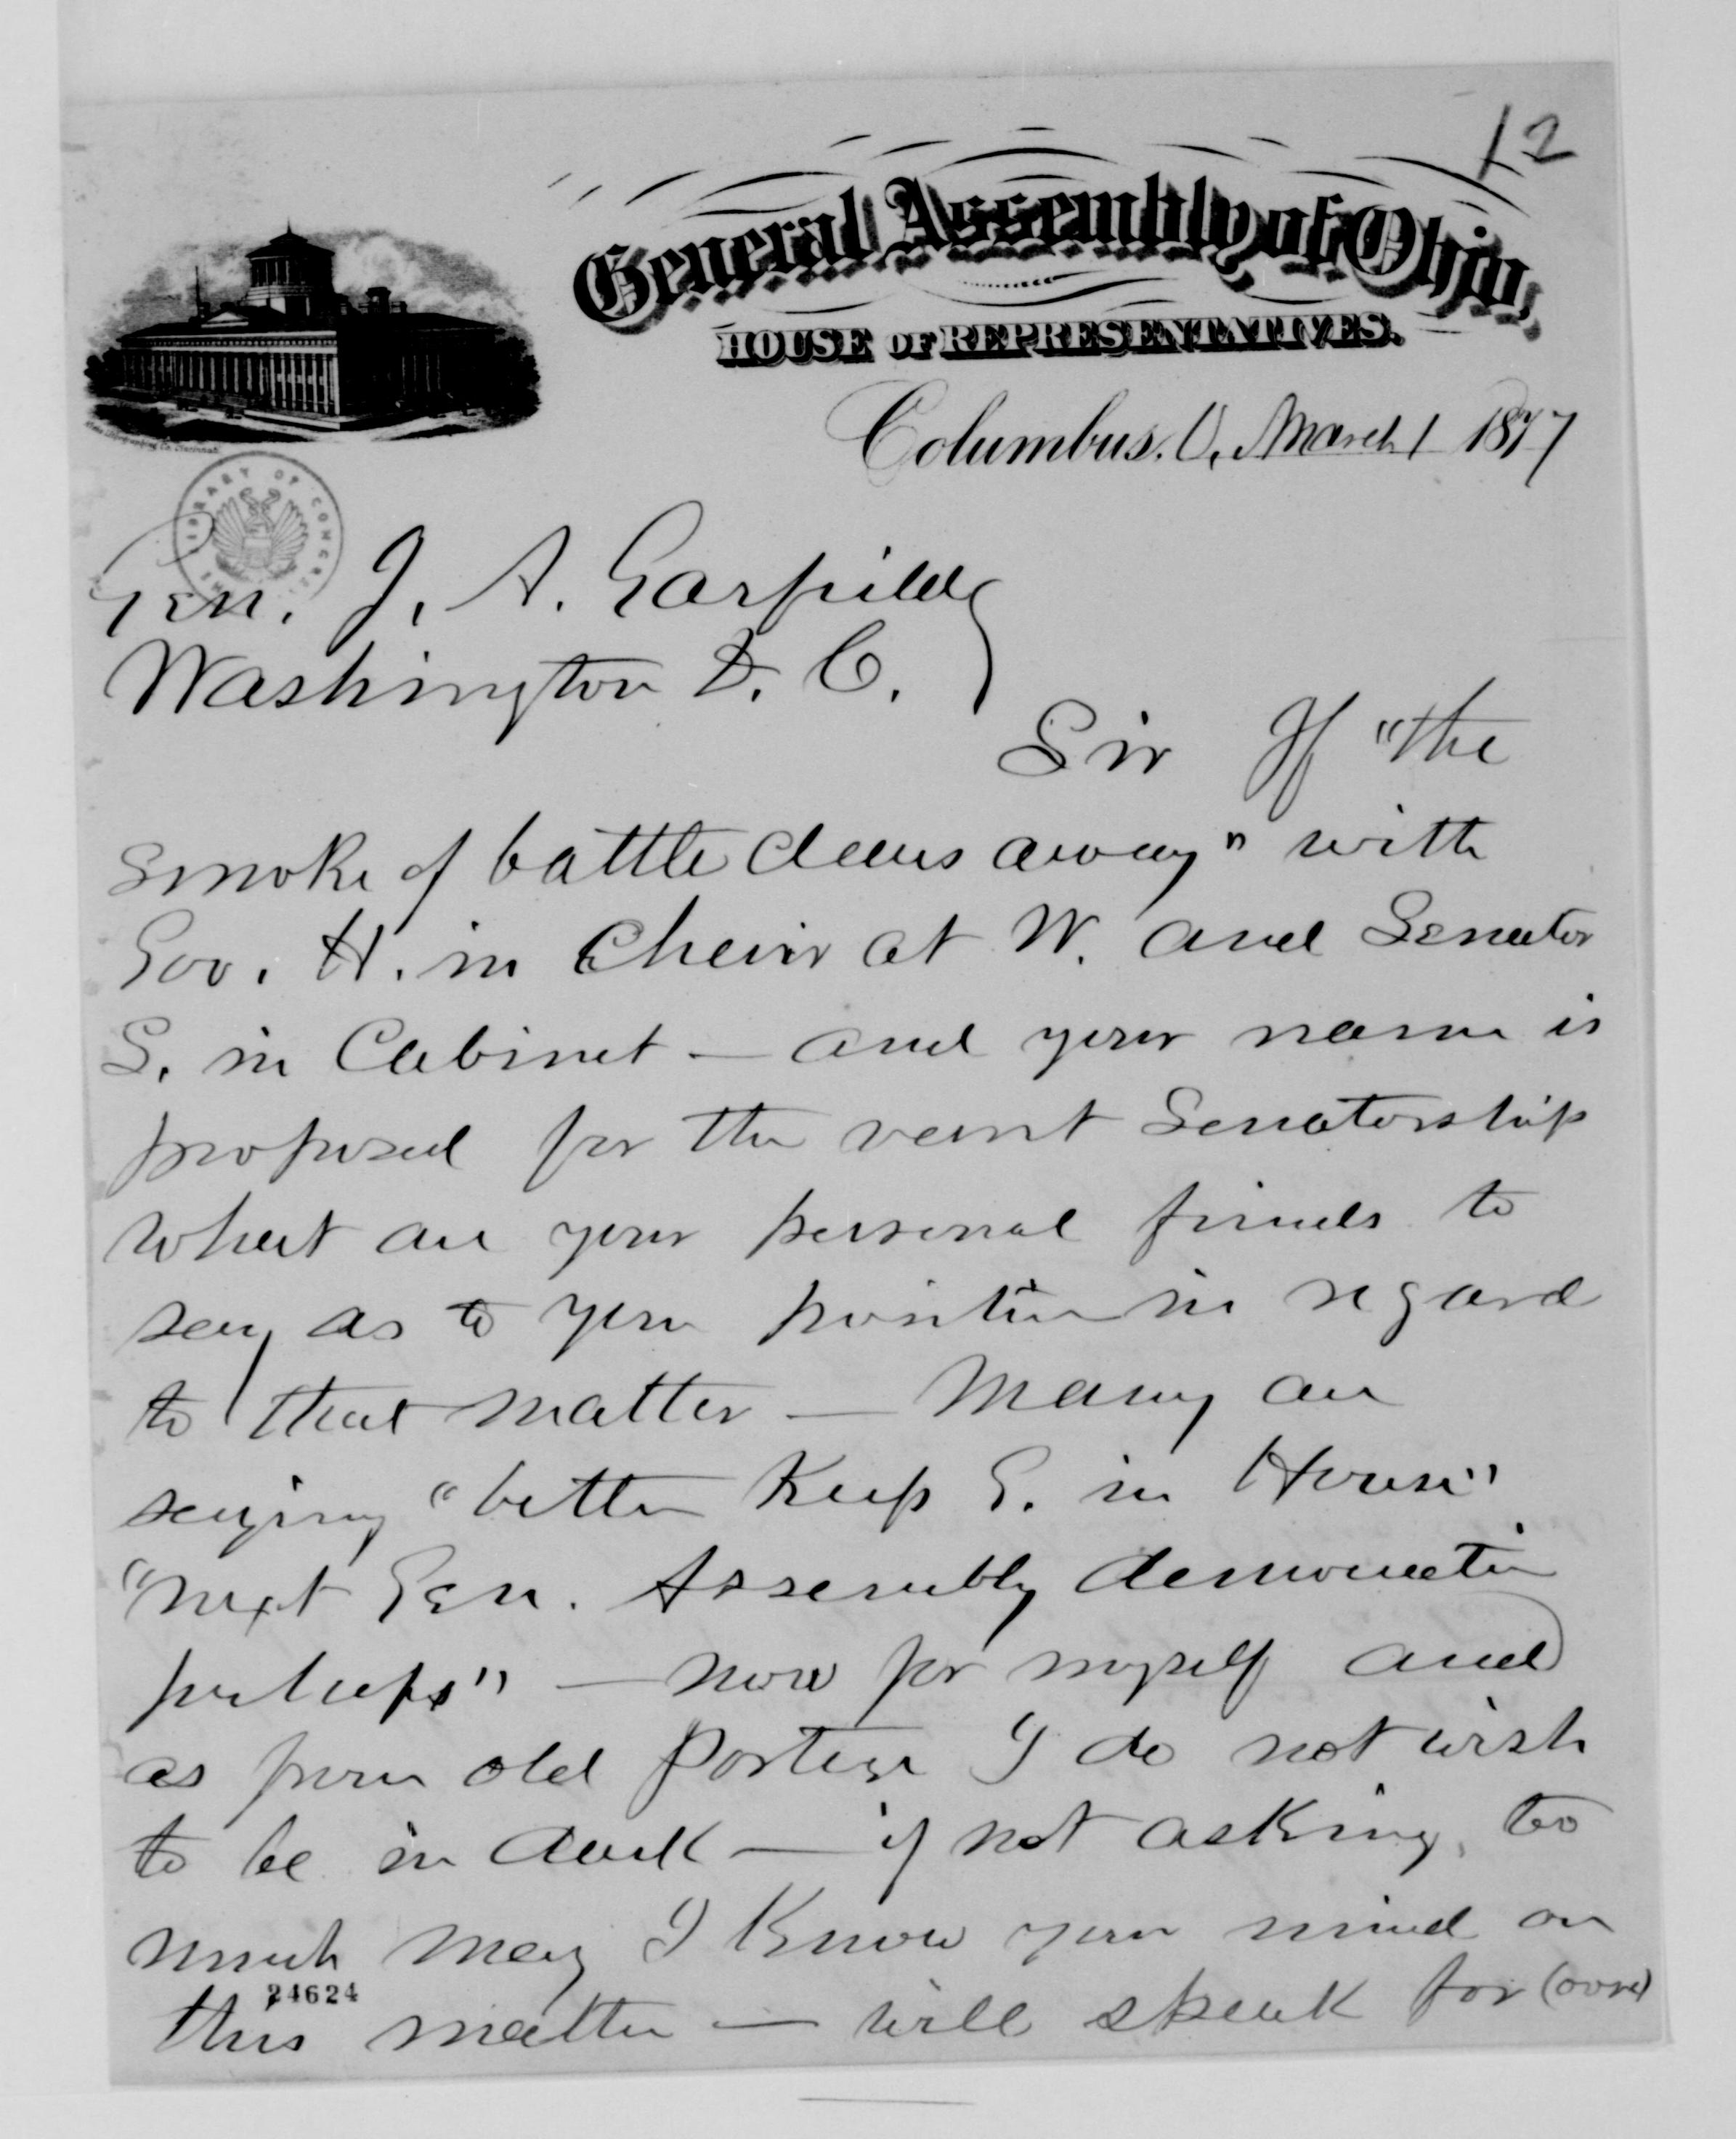 12
General Assembly of Ohio,
HOUSE OF REPRESENTATIVES.
Columbus, O, March 1 1877
THE LIBRARY OF CONGRESS
Gen. J. A. Garfield
Washington D. C.
Sir If "the
smoke of battle clears away" with
Gov. H. in Chair at W. and Senator
S. in Cabinet — and your name is
proposed for the Senatorship
what are your personal friends to
say as to your position in regard
to that matter — Many are
saying "better Keep G. in House"
"next Gen. Assembly democratic
perhaps" — now for myself and
as from old Portage I do not wish
to be in dark — if not asking too
much may I Know your mind on
this matter — will speak for (over)
24624